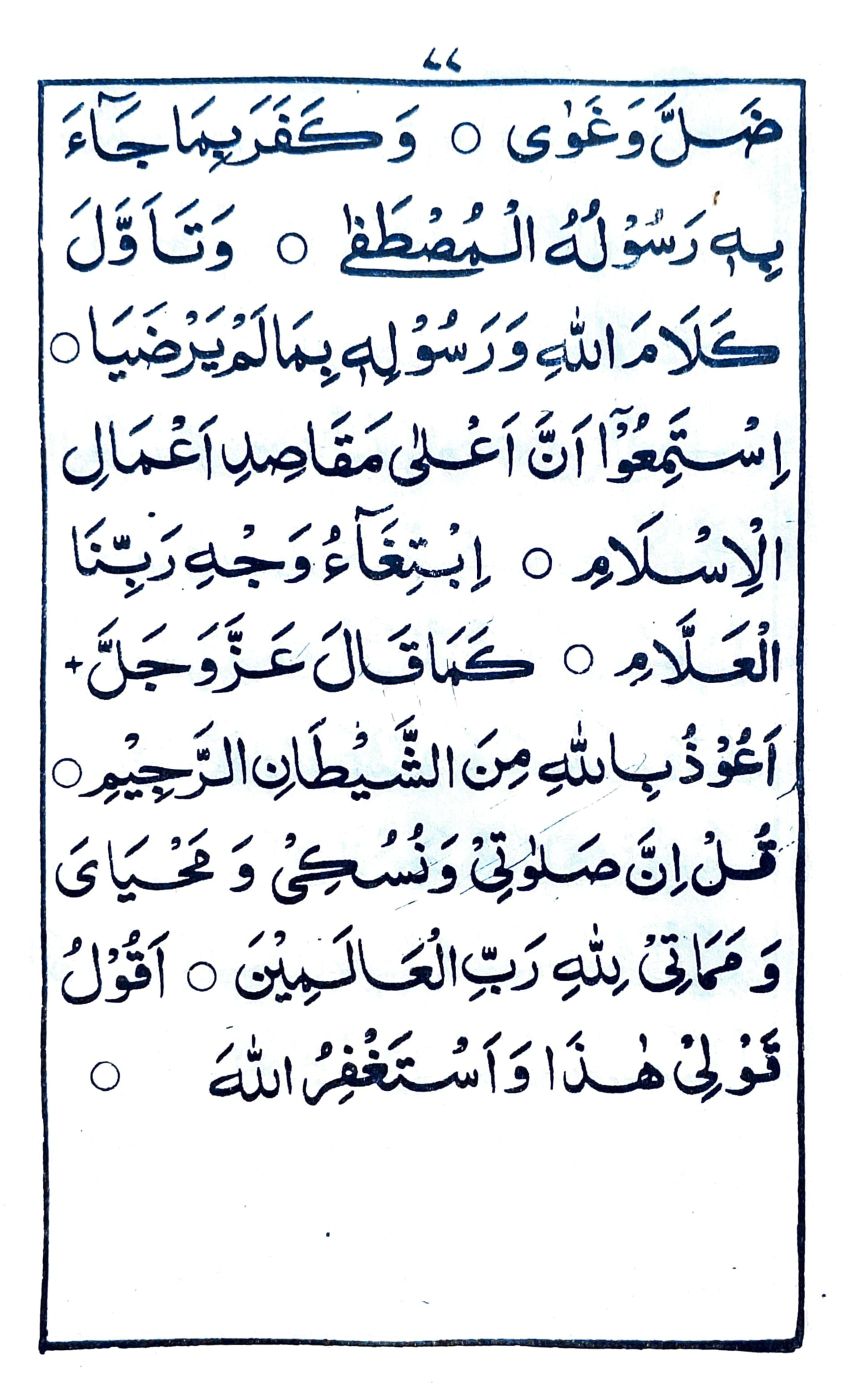 ٤٤
ضَلَّ وَغَوٰى ○ وَكَفَرَ بِمَا جَآءَ
بِهٖ رَسُوْلُهُ الْمُصْطَفٰى ○ وَتَاَوَّلَ
كَلَامَ اللّٰهِ وَرَسُوْلِهٖ بِمَا لَمْ يَرْضَيَا ○
اِسْتَمِعُوْٓا اَنَّ اَعْلٰى مَقَاصِدِ اَعْمَالِ
الْاِسْلَامِ ○ اِبْتِغَآءُ وَجْهِ رَبِّنَا
الْعَلَّامِ ○ كَمَا قَالَ عَزَّ وَ جَلَّ +
اَعُوْذُ بِاللّٰهِ مِنَ الشَّيْطَانِ الرَّجِيْمِ ○
قُلْ اِنَّ صَلٰوتِىْ وَنُسُكِىْ وَ مَحْيَاىَ
وَ مَمَاتِىْ لِلّٰهِ رَبِّ الْعَالَمِيْنَ ○ اَقُوْلُ
قَوْلِىْ هٰذَا وَاَسْتَغْفِرُ اللّٰهَ ○